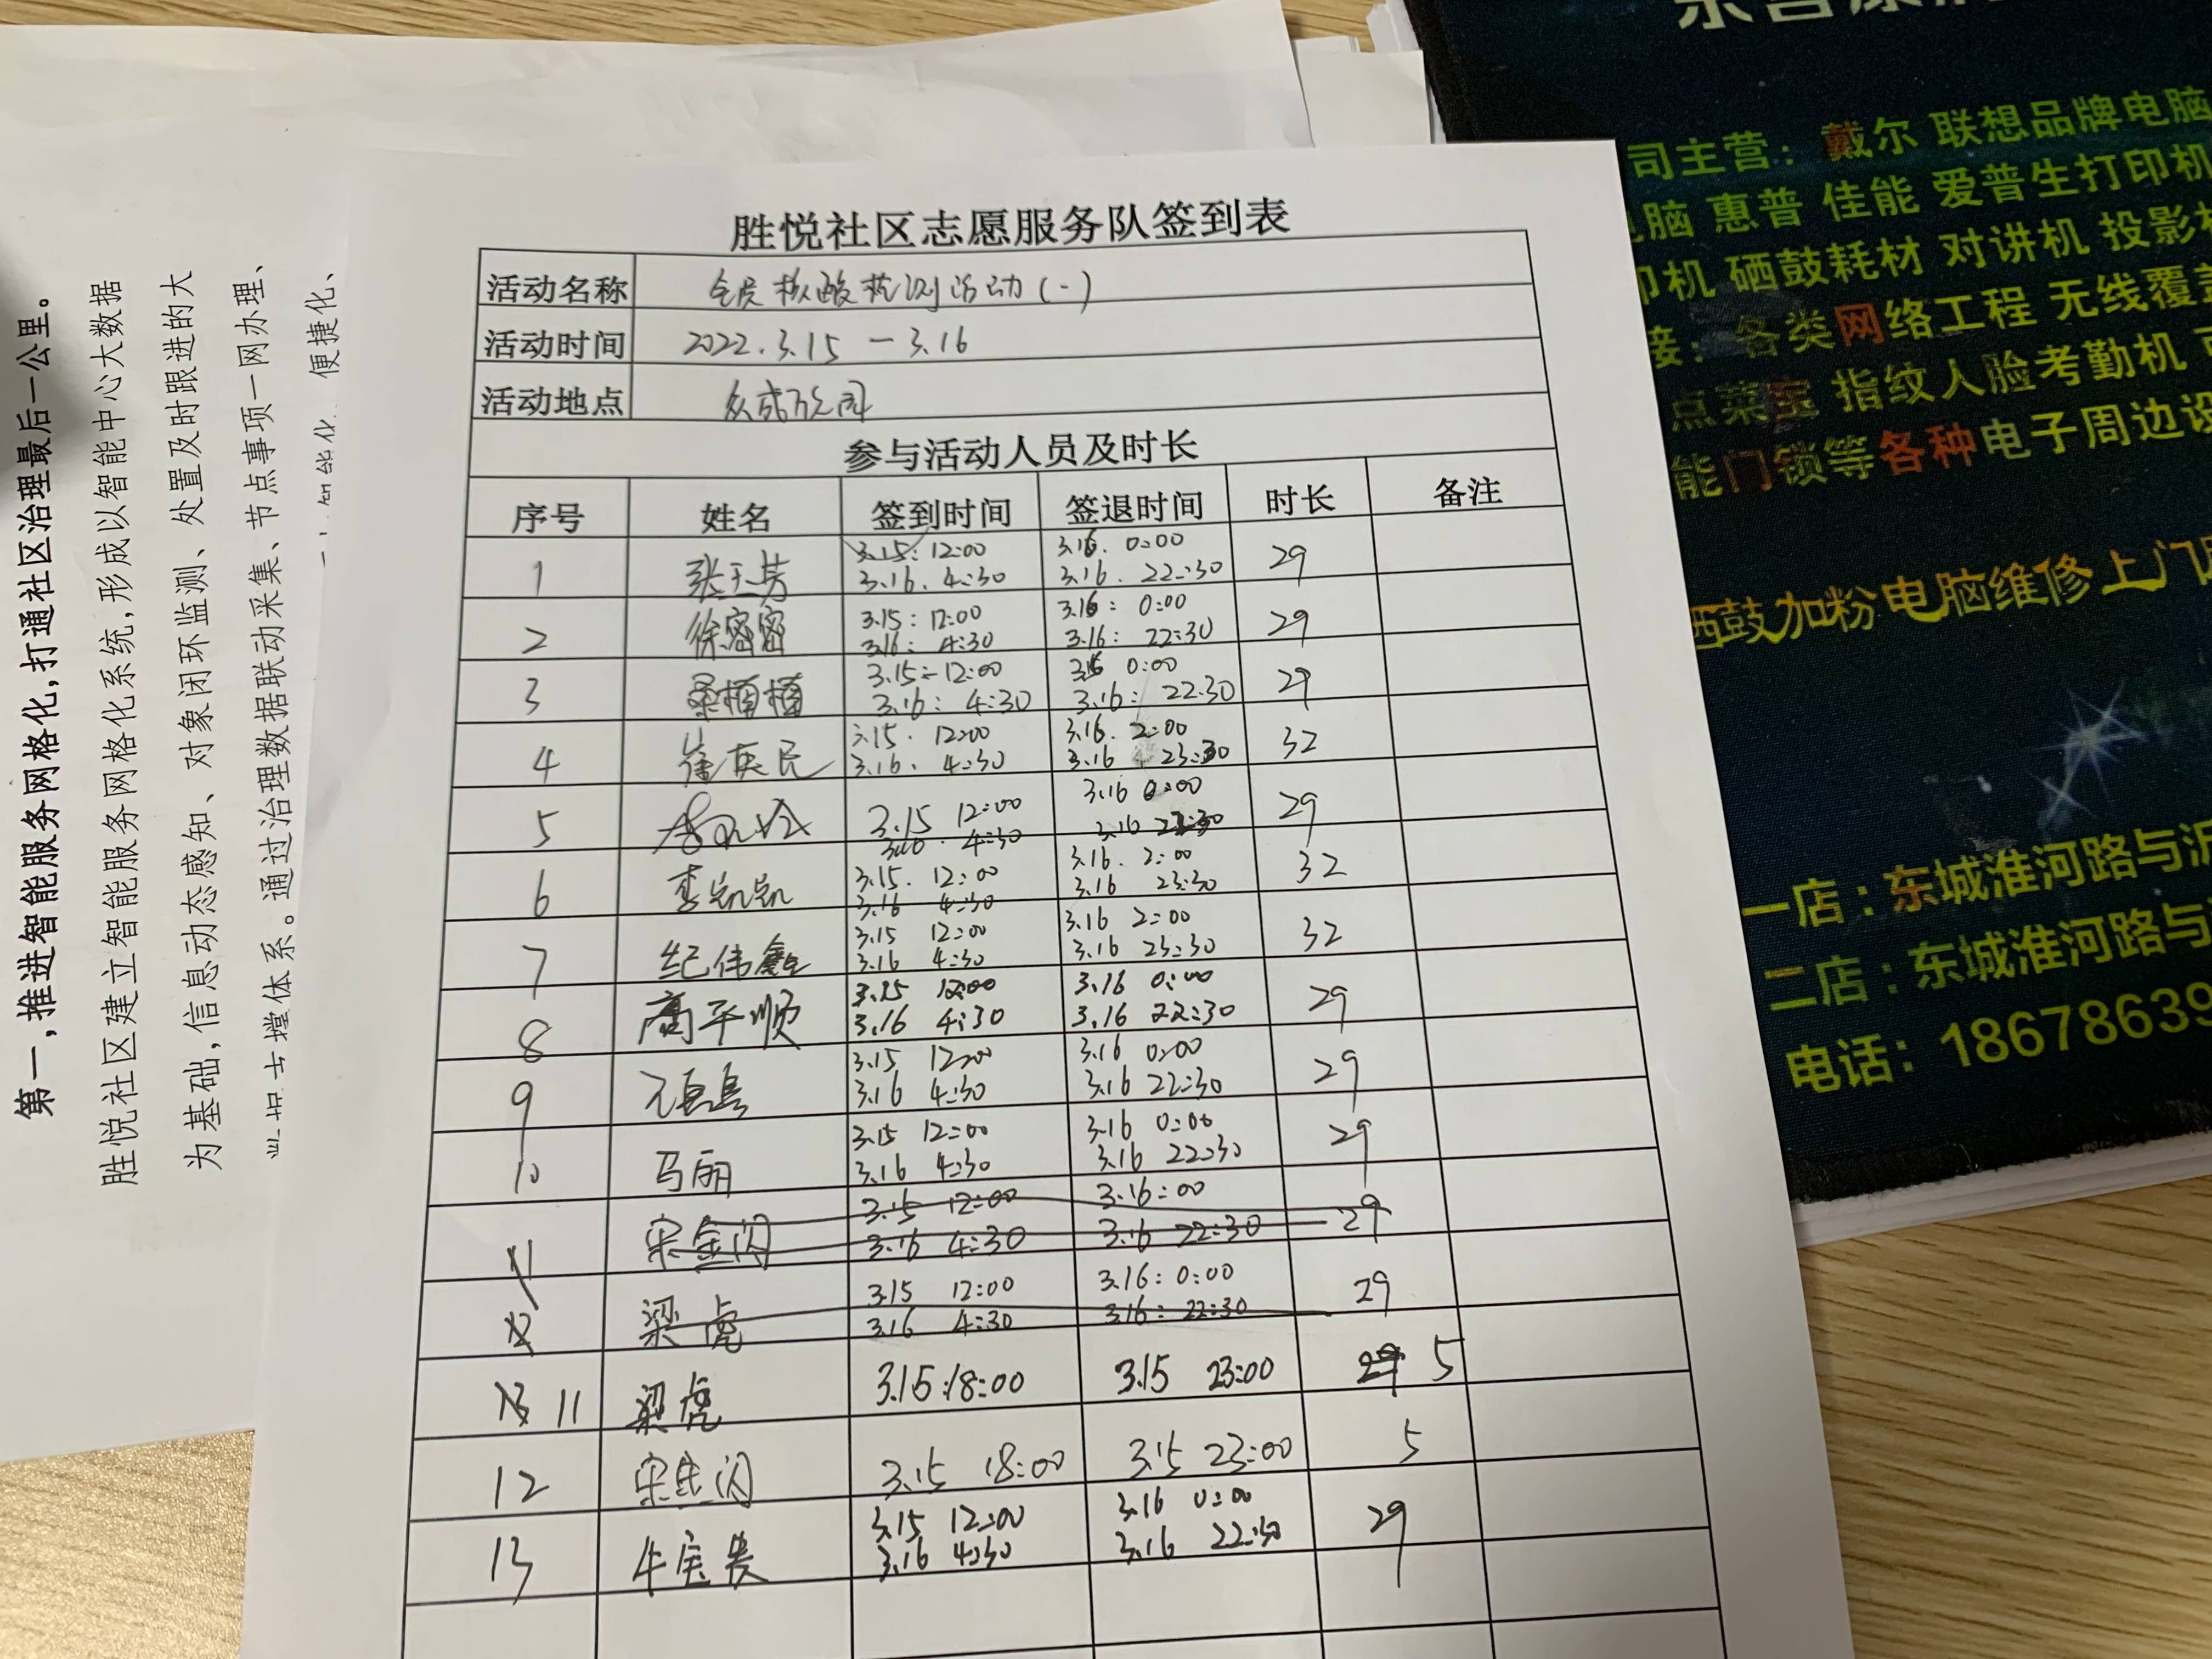 胜悦社区志愿服务队签到表
活动名称 全员核酸检测活动(一)
活动时间 2022.3.15 — 3.16
活动地点 众成
参与活动人员及时长
序号 姓名 签到时间 签退时间 时长 备注
1 张玉芳 3.15: 12:00 3.16. 0:00 29
3.16. 4:30 3.16. 22:30
2 徐密密 3.15: 12:00 3.16: 0:00 29
3.16: 4:30 3.16: 22:30
3 桑楠楠 3.15: 12:00 3.16 0:00 29
3.16: 4:30 3.16: 22:30
4 崔英民 3.15. 12:00 3.16. 2:00 32
3.16. 4:30 3.16 23:30
5 3.15 12:00 3.16 0:00 29
3.16. 4:30 3.16 22:30
6 李凯凯 3.15. 12:00 3.16. 2:00 32
3.16 4:30 3.16 23:30
7 纪伟鑫 3.15 12:00 3.16 2:00 32
3.16 4:30 3.16 23:30
8 高平顺 3.15 12:00 3.16 0:00 29
3.16 4:30 3.16 22:30
9 3.15 12:00 3.16 0:00 29
3.16 4:30 3.16 22:30
10 马丽 3.15 12:00 3.16 0:00 29
3.16 4:30 3.16 22:30
11 宋金闪 3.15 12:00 3.16:00 29
3.16 4:30 3.16 22:30
12 梁虎 3.15 12:00 3.16: 0:00 29
3.16 4:30 3.16: 22:30
13 11 梁虎 3.15 18:00 3.15 23:00 29 5
12 宋金闪 3.15 18:00 3.15 23:00 5
13 牛宝贵 3.15 12:00 3.16 0:00 29
3.16 4:30 3.16 22:30
第一,推进智能服务网格化,打通社区治理最后一公里。
胜悦社区建立智能服务网格化系统,形成以智能中心大数据
为基础,信息动态感知、对象闭环监测、处置及时跟进的大
支撑体系。通过治理数据联动采集、节点事项一网办理、
便捷化、
司主营：戴尔 联想品牌电脑
电脑 惠普 佳能 爱普生打印机
印机 硒鼓耗材 对讲机 投影机
接：各类网络工程 无线覆盖
点菜宝 指纹人脸考勤机
能门锁等各种电子周边设
硒鼓加粉 电脑维修 上门
一店：东城淮河路与沂
二店：东城淮河路与
电话：18678639